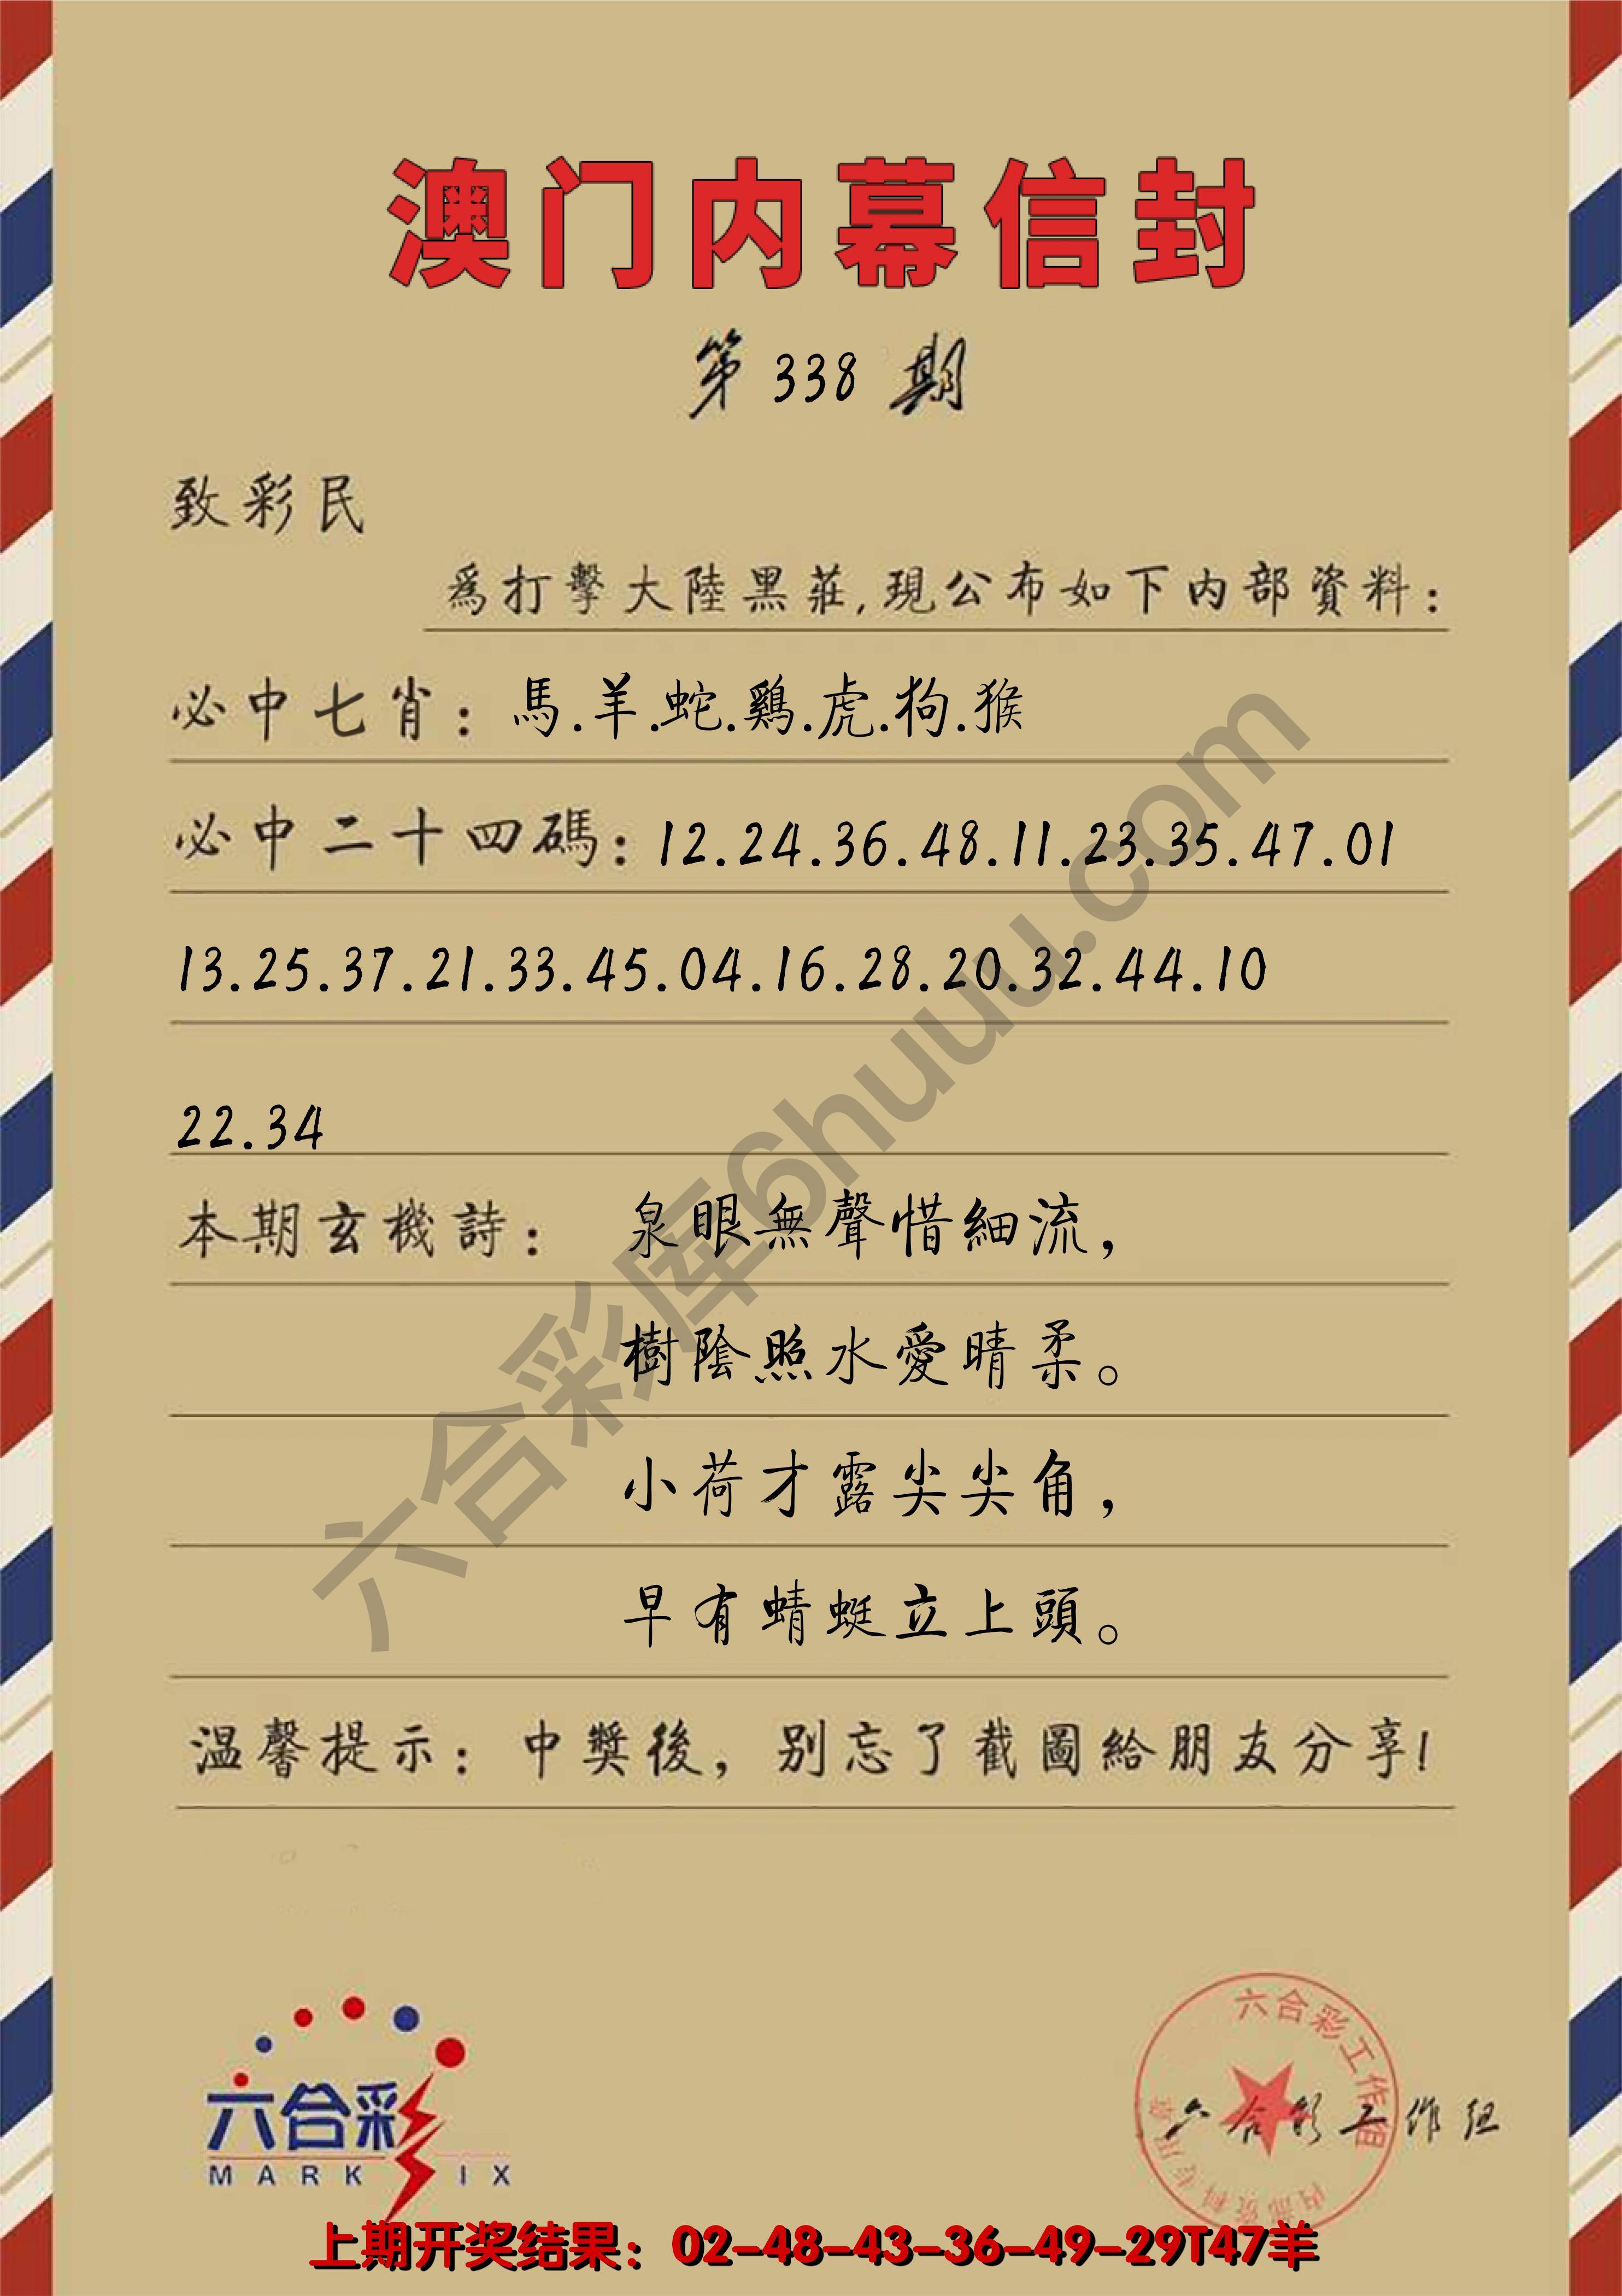 澳门内幕信封
第 338 期
致彩民
爲打擊大陸黑莊,現公布如下内部資料:
必中七肖: 馬.羊.蛇.鷄.虎.狗.猴
必中二十四碼: 12.24.36.48.11.23.35.47.01
13.25.37.21.33.45.04.16.28.20.32.44.10
22.34
本期玄機詩: 泉眼無聲惜細流,
樹陰照水愛晴柔。
小荷才露尖尖角,
早有蜻蜓立上頭。
温馨提示: 中獎後, 别忘了截圖給朋友分享!
六合彩库6huuu.com
六合彩
MARK IX
六合彩工作组
内部资料专用章
六合彩工作组
上期开奖结果: 02-48-43-36-49-29T47羊